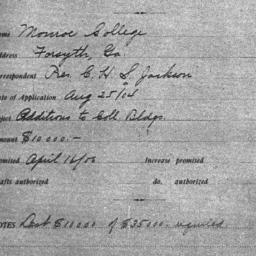 ame Monroe College
ddress Forsyth, Ga.
rrespondent Pres. C. H. S. Jackson
ate of Application Aug 25/04
ject Additions to Coll. Bldgs.
mount $10000.-
omised April 16/06 Increase promised
afts authorized do. authorized
NOTES Last $10000 of $35000 required